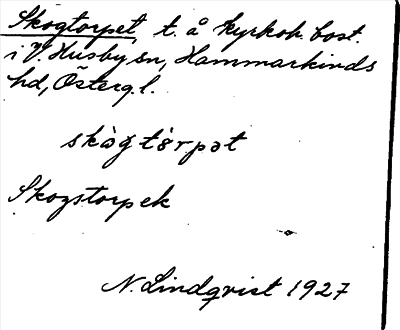 Skogtorpet, t. å kyrkoh. bost.
i V. Husby sn, Hammarkinds
hd, Österg. l.
skòg tòrpət
Skogstorpek
N. Lindqvist 1927